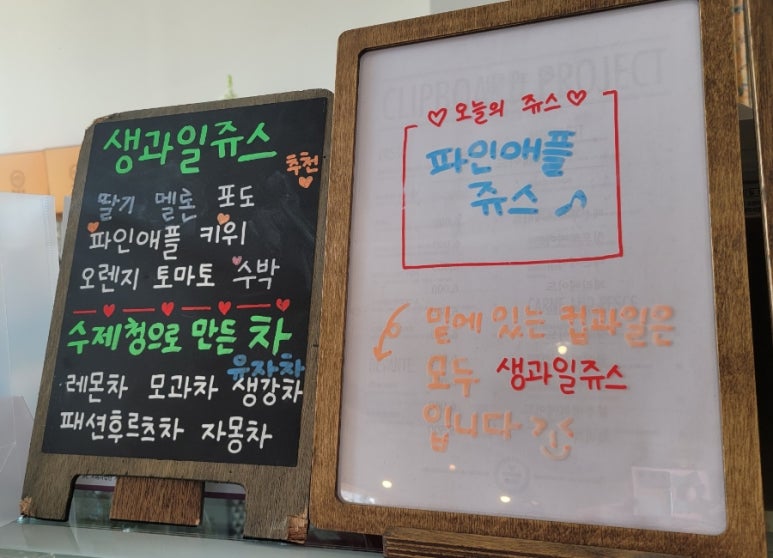 생과일쥬스
추천
딸기 멜론 포도
파인애플 키위
오렌지 토마토 수박
수제청으로 만든 차
유자차
레몬차 모과차 생강차
패션후르츠차 자몽차
오늘의 쥬스
파인애플
쥬스
밑에 있는 컵과일은
모두 생과일쥬스
입니다